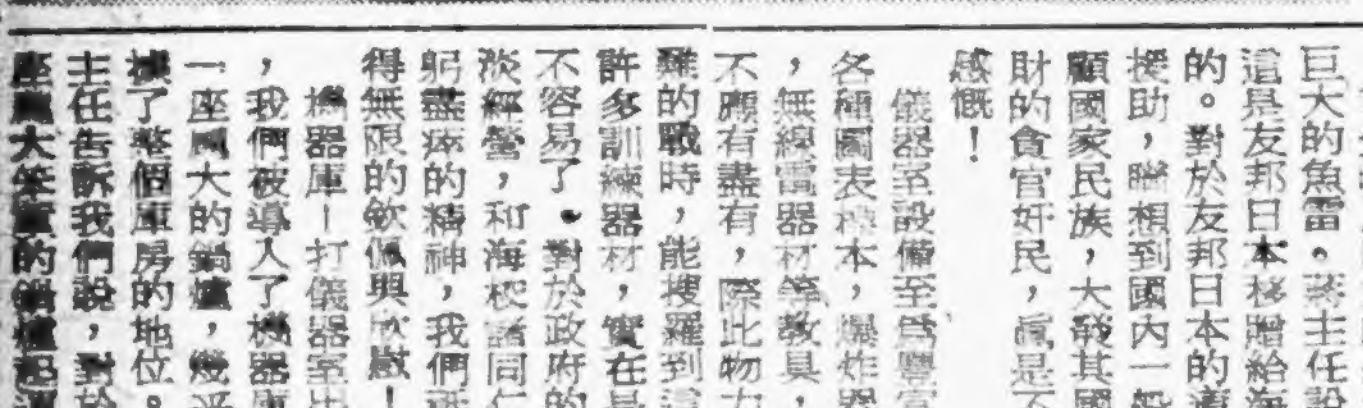 巨大的魚雷。蔣主任說
這是友邦日本移贈給海
的。對於友邦日本的
援助,聯想到國內一般
顧國家民族,大發其國
財的貪官奸民,眞是不
感慨!
儀器室設備至爲豐富
各種圖表標本,爆炸器
,無線電器材等教具,
不應有盡有,際此物力
難的戰時,能搜羅到這
許多訓練器材,實在是
不容易了。對於政府的
淡經營,和海校諸同仁
躬盡瘁的精神,我們
得無限的欽佩與欣慰!
機器庫—打儀器室出
,我們被導入了機器庫
一座風大的鍋爐,幾乎
據了整個庫房的地位。
主任告訴我們說,對於
座風大笨重的鍋爐